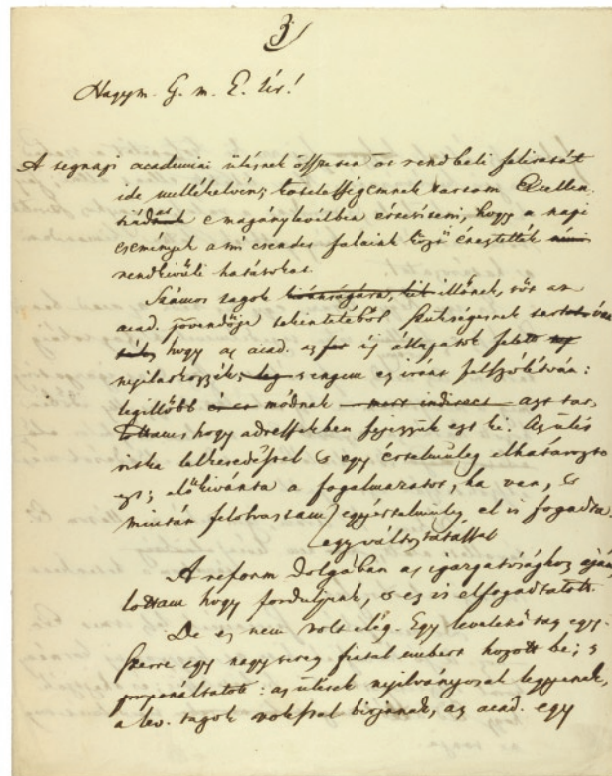 3/
Nagym. G. m. E. Úr!
A tegnapi academiai ülésnek összesen és rendbeli feliratát
ide mellékelvén; kötelességemnek tartom Excellen
tiádnak e magánylevélben értesíteni, hogy a napi
események a mi csendes falaink közé éreztették némi
rendkívüli hatásokat.
Számos tagok kívánságára, kik illőnek, sőt az
acad. jövendője tekintetéből szükségesnek tartották
hogy az acad. az új állapotok felett
nyilatkozzék; s engem ez iránt felszólítván:
legillőbb módnak mert indirect azt tar
tottam, hogy adressekben fejezzük ezt ki. Az ülés
ritka lelkesedéssel s egy értelmüleg elhatározta
ezt; előkívánta a fogalmazatot, ha van, s
miután felolvastam egyértelmüleg el is fogadta.
egy változtatással
A reform dolgában az igazgatósághoz aján
lottam hogy forduljunk, s ez is elfogadtatott.
De ez nem volt elég. Egy levelező tag egy-
szerre egy nagy sereg fiatal embert hozott be; s
proponáltatott: az ülések nyilvánosak legyenek,
a lev. tagok vokssal bírjanak, az acad. egy